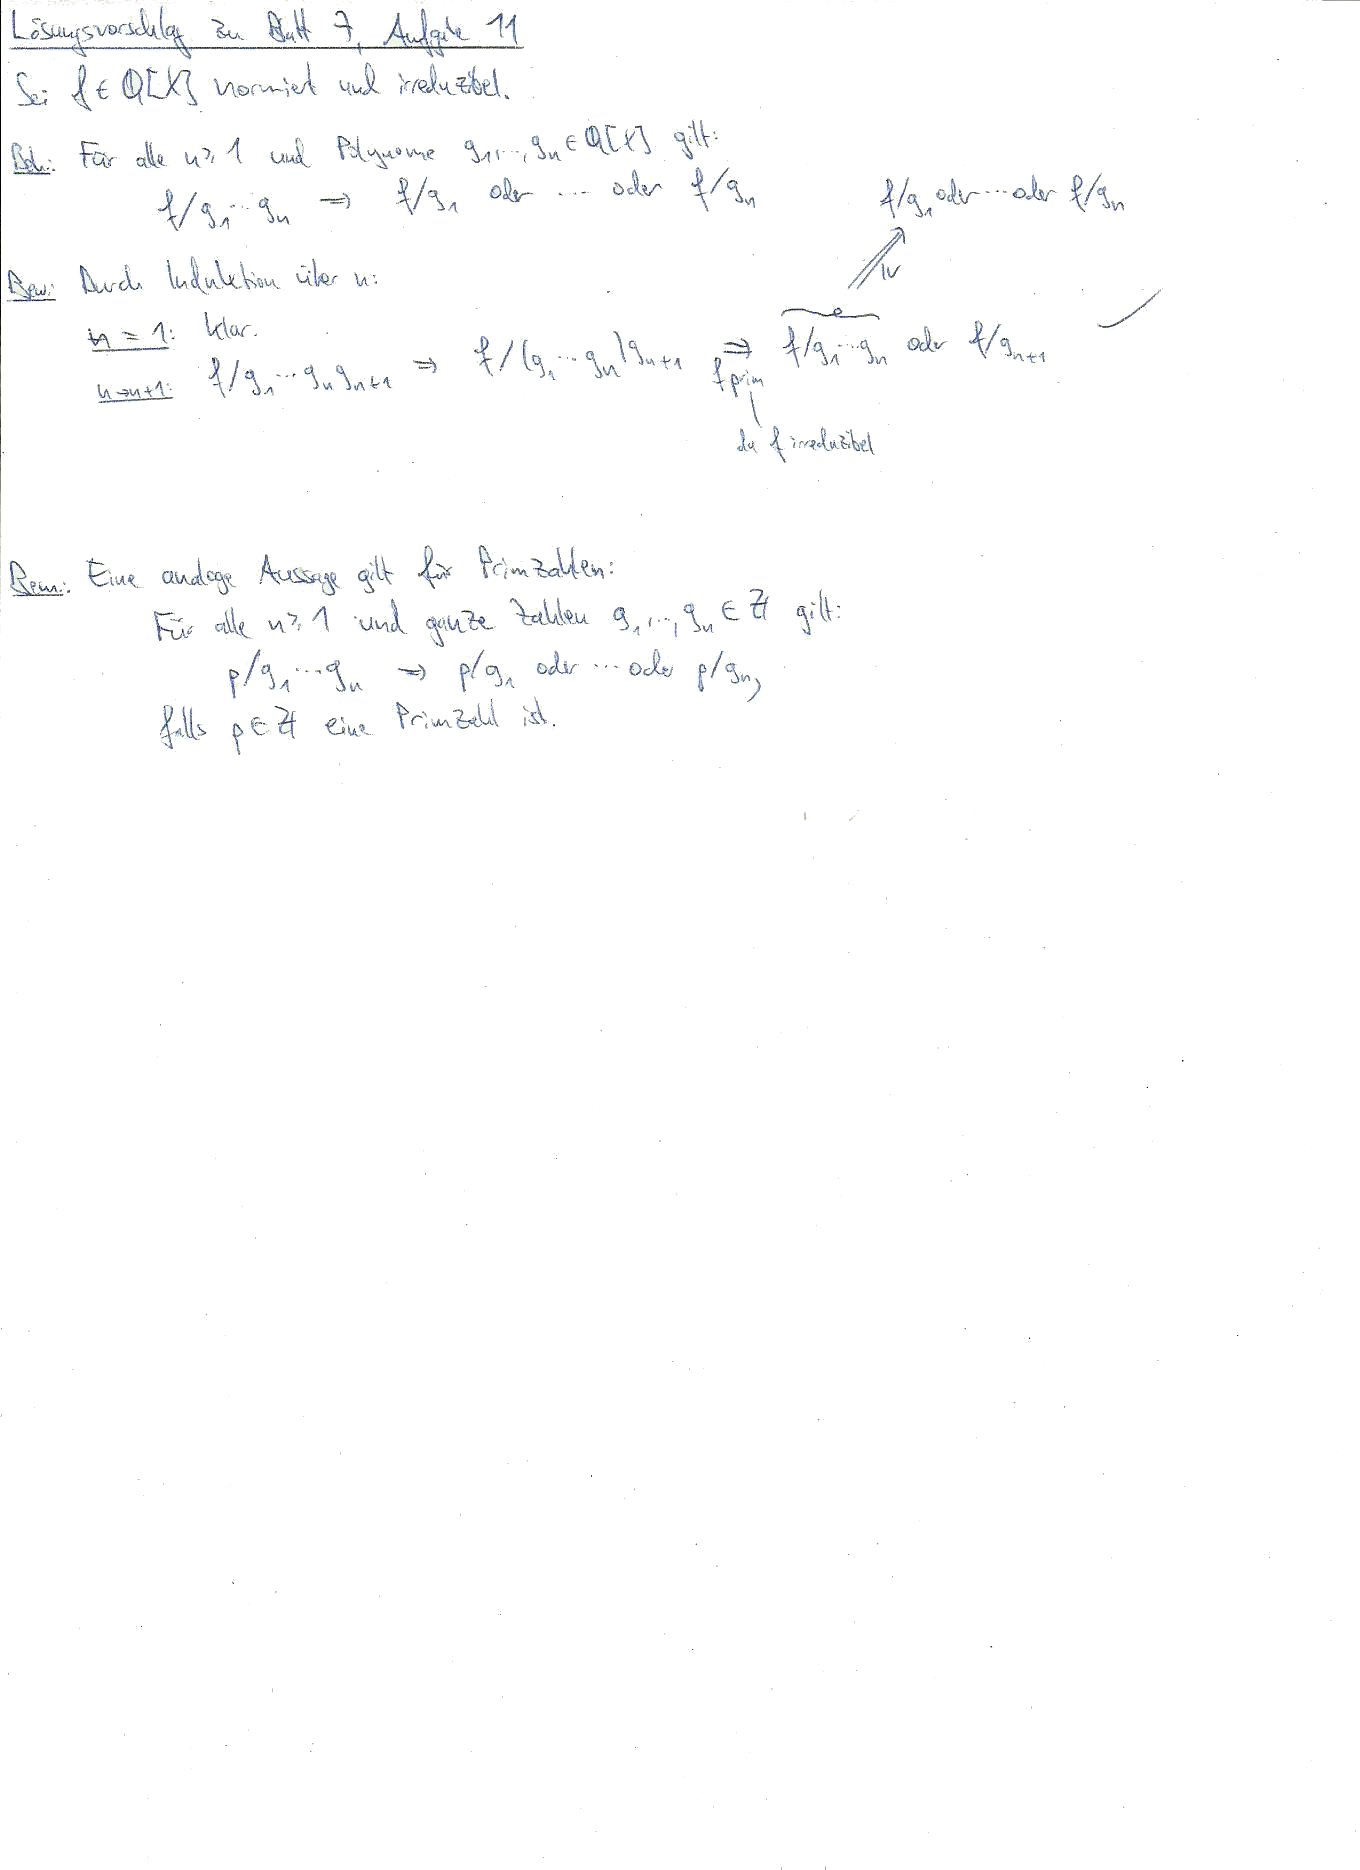 Lösungsvorschlag zu Blatt 7, Aufgabe 11
Sei f ∈ Q[X] normiert und irreduzibel.
Beh.: Für alle n ≥ 1 und Polynome g₁, ..., gₙ ∈ Q[X] gilt:
f/g₁ ⋯ gₙ ⇒ f/g₁ oder ⋯ oder f/gₙ
Bew.: Durch Induktion über n:
n = 1: klar.
n→n+1: f/g₁ ⋯ gₙgₙ₊₁ ⇒ f/(g₁ ⋯ gₙ)gₙ₊₁ ⇒ f/g₁ ⋯ gₙ oder f/gₙ₊₁ ✓
f prim
da f irreduzibel
IV
f/g₁ oder ⋯ oder f/gₙ
Bem.: Eine analoge Aussage gilt für Primzahlen:
Für alle n ≥ 1 und ganze Zahlen g₁, ..., gₙ ∈ Z gilt:
p/g₁ ⋯ gₙ ⇒ p/g₁ oder ⋯ oder p/gₙ,
falls p ∈ Z eine Primzahl ist.